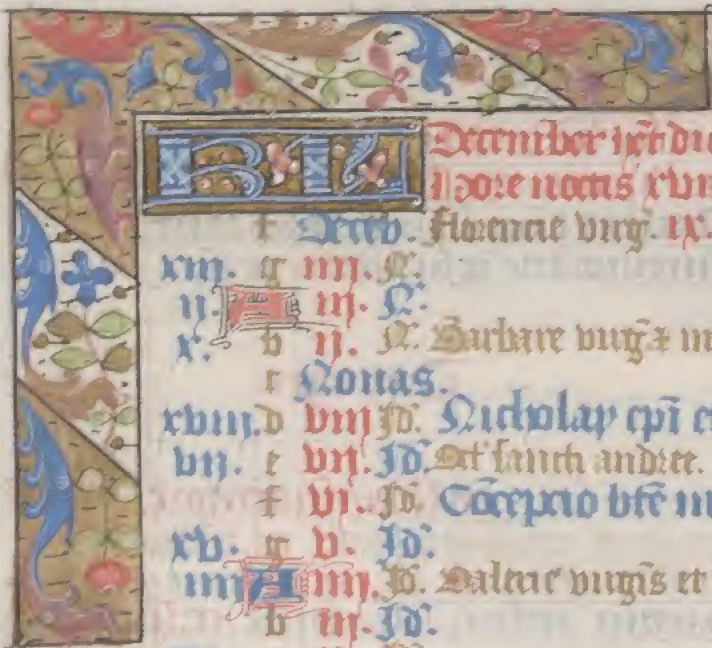 KL December het du
hore noctis xviii
f Deceb. Florencie virg. ix.
xiii. g iiii. N.
ii. A iii. N.
x. b ii. N. Barbare virg z m
c Nonas.
xviii. d viii Id. Nicholay epi et
vii. e vii. Id. Oct sancti andree.
f vi. Id. Concepcio bte m
xv. g v. Id.
iiii A iiii. Id. Valerie virgis et
b iii. Id.